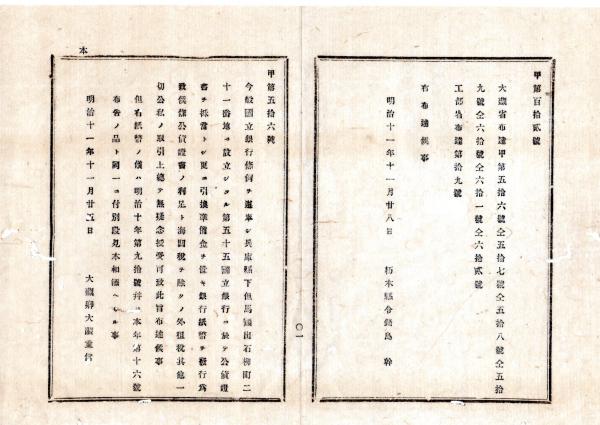 甲第百拾貳號
大藏省布達甲第五拾六號仝五拾七號仝五拾八號仝五拾
九號仝六拾號仝六拾一號仝六拾貳號
工部省布達第拾九號
右布達候事
明治十一年十一月廿八日 栃木縣令鍋島 幹
〇一
甲第五拾六號
今般國立銀行條例ヲ遵奉シ兵庫縣下但馬國出石柳町二
十一番地ニ設立シタル第五十五國立銀行ニ於テ公債證
書ヲ抵當トシ更ニ引換準備金ヲ備ヘ銀行紙幣ヲ發行爲
致候條公債證書ノ利足ト海關稅ヲ除クノ外租稅其他一
切公私ノ取引上總テ無疑念授受可致此旨布達候事
但右紙幣ノ儀ハ明治十年第九拾號幷ニ本年第十六號
布告ノ品ト同一ニ付別段見本相添ヘサル事
明治十一年十一月廿二日 大藏卿大隈重信
本